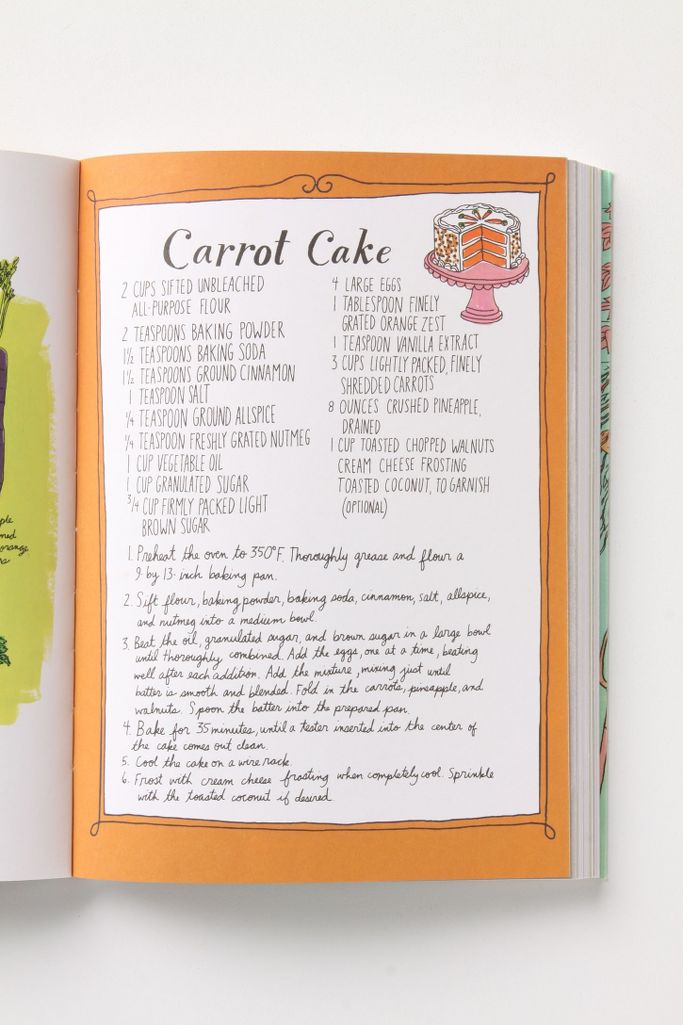 Carrot Cake
2 CUPS SIFTED UNBLEACHED
ALL-PURPOSE FLOUR
2 TEASPOONS BAKING POWDER
1½ TEASPOONS BAKING SODA
1½ TEASPOONS GROUND CINNAMON
1 TEASPOON SALT
¼ TEASPOON GROUND ALLSPICE
¼ TEASPOON FRESHLY GRATED NUTMEG
1 CUP VEGETABLE OIL
1 CUP GRANULATED SUGAR
3/4 CUP FIRMLY PACKED LIGHT
BROWN SUGAR
4 LARGE EGGS
1 TABLESPOON FINELY
GRATED ORANGE ZEST
1 TEASPOON VANILLA EXTRACT
3 CUPS LIGHTLY PACKED, FINELY
SHREDDED CARROTS
8 OUNCES CRUSHED PINEAPPLE,
DRAINED
1 CUP TOASTED CHOPPED WALNUTS
CREAM CHEESE FROSTING
TOASTED COCONUT, TO GARNISH
(OPTIONAL)
1. Preheat the oven to 350°F. Thoroughly grease and flour a
9-by 13-inch baking pan.
2. Sift flour, baking powder, baking soda, cinnamon, salt, allspice,
and nutmeg into a medium bowl.
3. Beat the oil, granulated sugar, and brown sugar in a large bowl
until thoroughly combined. Add the eggs, one at a time, beating
well after each addition. Add the mixture, mixing just until
batter is smooth and blended. Fold in the carrots, pineapple, and
walnuts. Spoon the batter into the prepared pan.
4. Bake for 35 minutes, until a tester inserted into the center of
the cake comes out clean.
5. Cool the cake on a wire rack.
6. Frost with cream cheese frosting when completely cool. Sprinkle
with the toasted coconut if desired